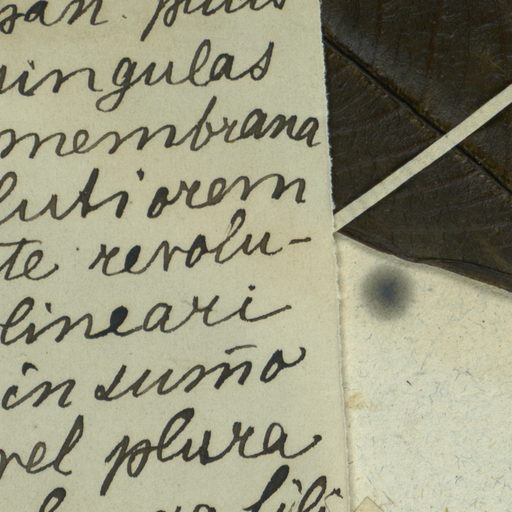 singulas
membrana
lutiorem
te revolu-
lineari
in sum̄o
vel plura